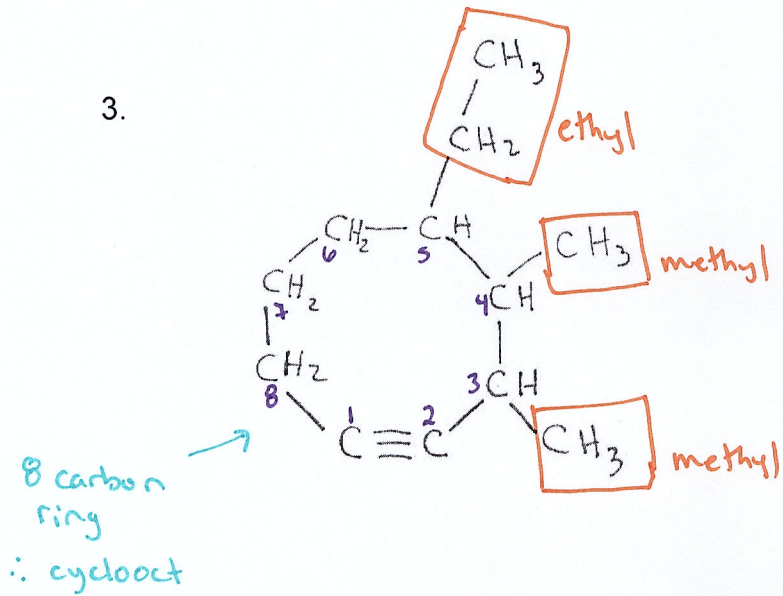 3.
CH3
CH2
ethyl
CH2
6
CH
5
CH3
methyl
CH2
7
4CH
CH2
8
3CH
1
2
C≡C
CH3
methyl
8 carbon
ring
∴ cyclooct